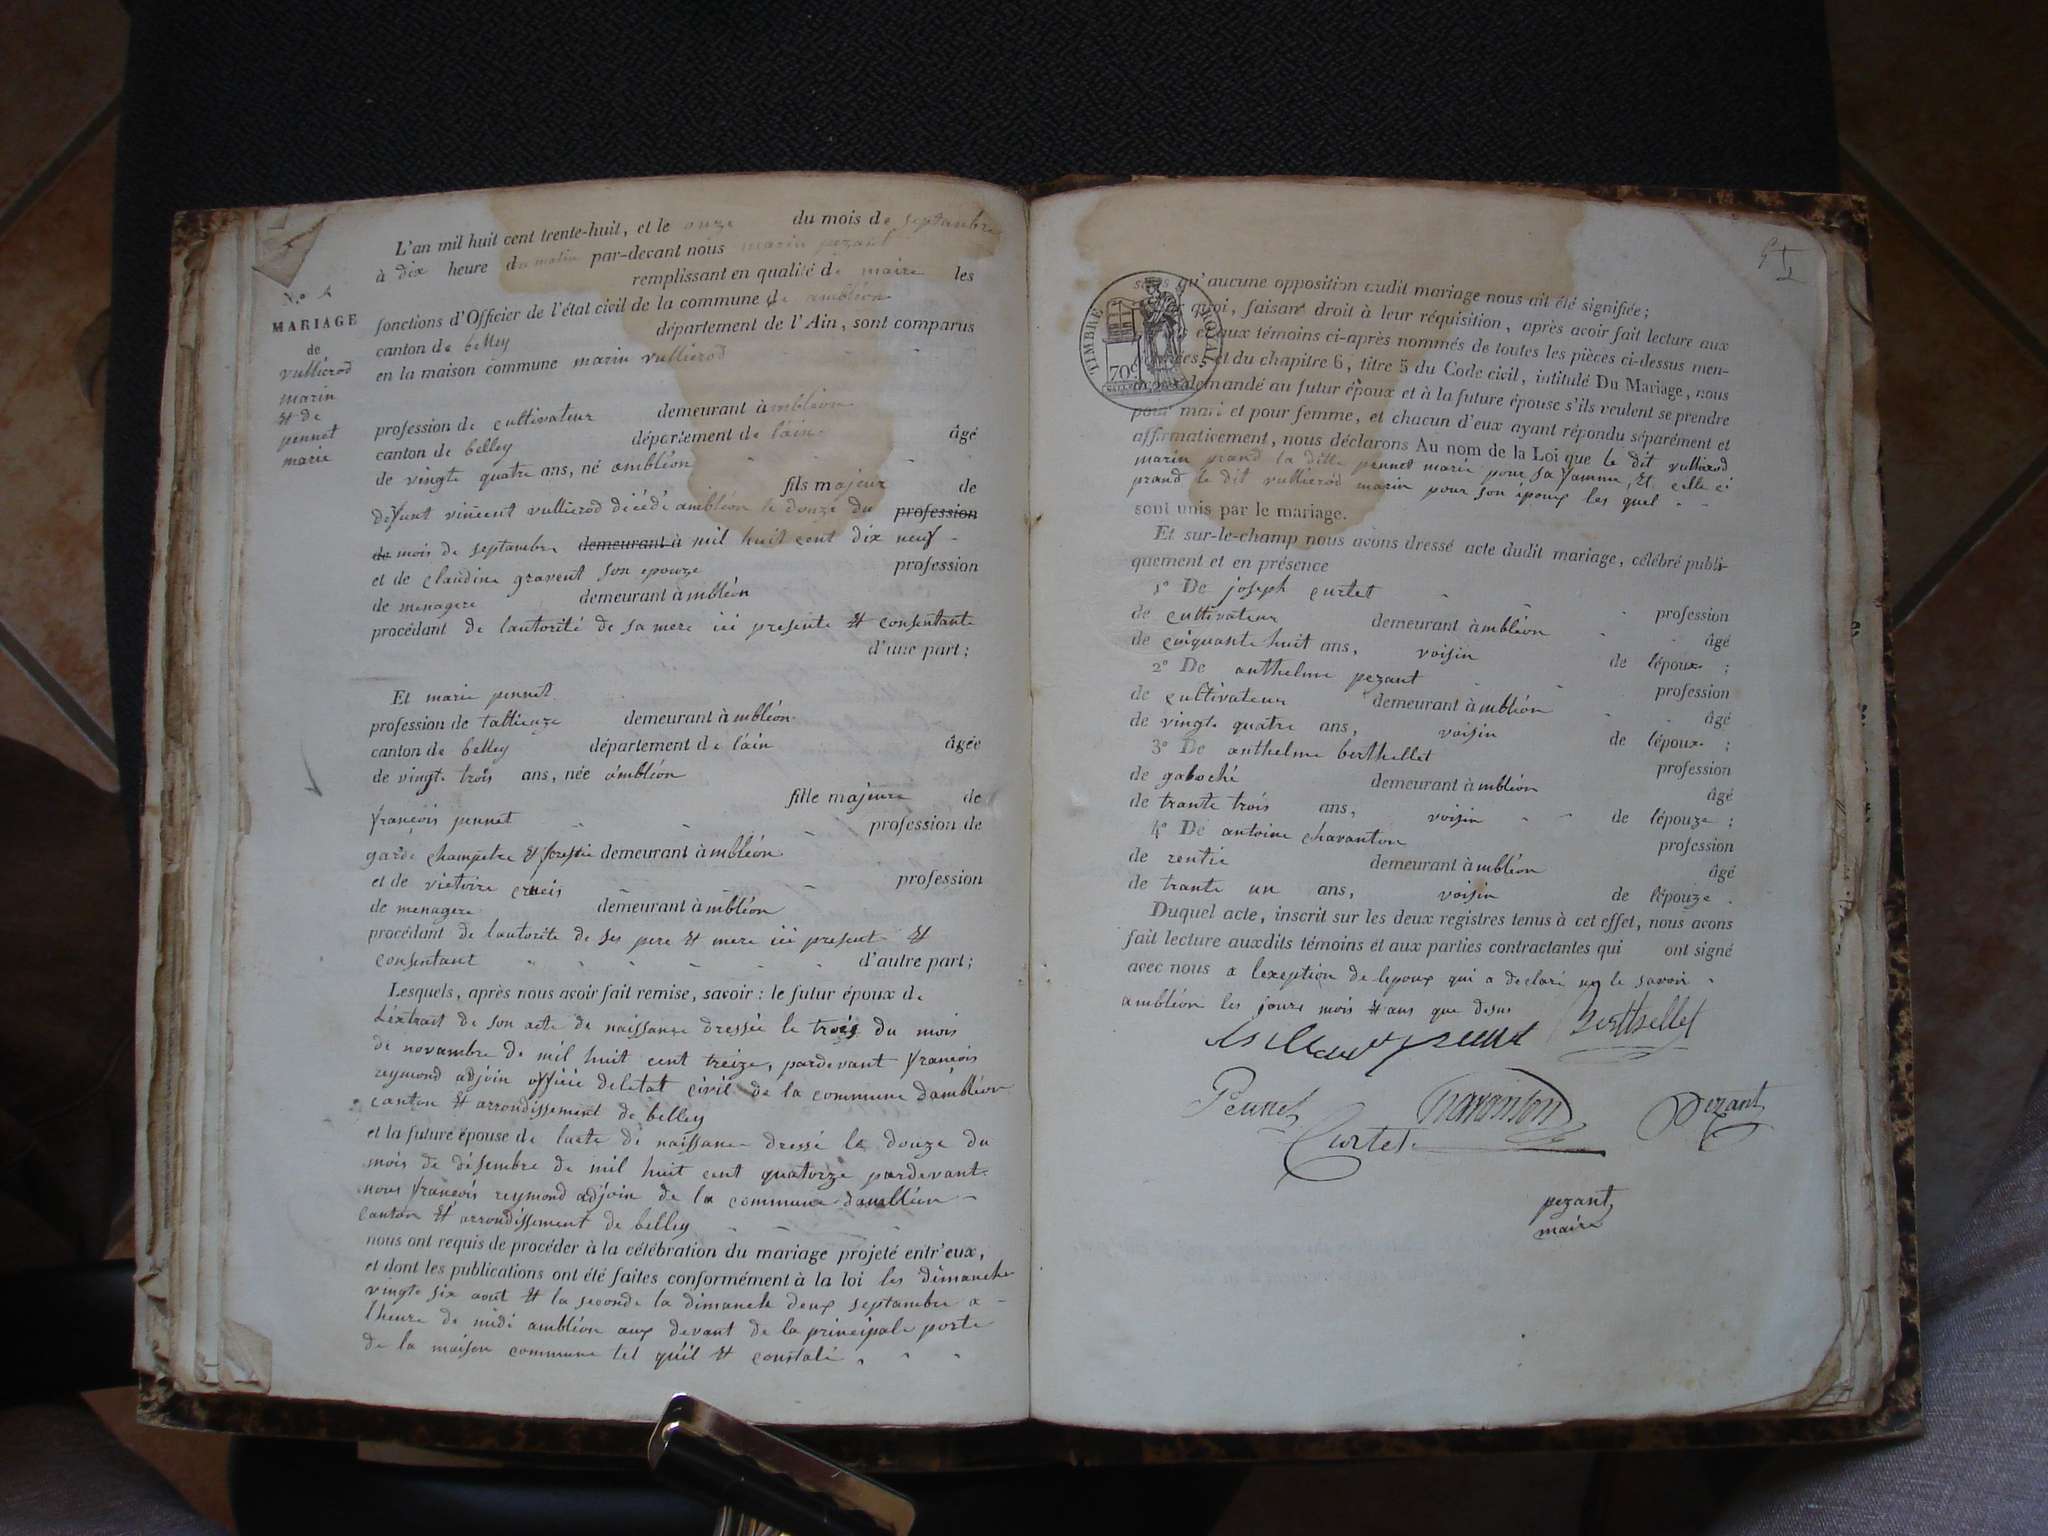 L'an mil huit cent trente-huit, et le onze du mois de septambre
à dix heure du matin par-devant nous marin pezant
remplissant en qualité de maire les
fonctions d'Officier de l'état civil de la commune de ambléon
canton de belley département de l'Ain, sont comparus
en la maison commune marin vullierod
profession de cultivateur demeurant à mbléon
canton de belley département de lain âgé
de vingte quatre ans, né ambléon
fils majeur de
defunt vincent vullierod décédé ambléon le douze du profession
de mois de septambre demeurant à mil huit cent dix neuf
et de claudine gravent son epouze profession
de menagere demeurant à mbléon
procédant de lautorité de sa mere ici presente et consentante
d'une part;
N.o
MARIAGE
de
vullierod
marin
et de
pennet
marie
Et marie pennet
profession de tallieuze demeurant à mbléon
canton de belley département de lain âgée
de vingte trois ans, née ambléon
fille majeure de
françois pennet profession de
garde champetre et forestie demeurant à mbléon
et de victoire crucis profession
de menagere demeurant à mbléon
procédant de lautorite de ses pere et mere ici present et
consentant d'autre part;
Lesquels, après nous avoir fait remise, savoir: le futur époux de
Léxtrait de son acte de naissance dressée le trois du mois
de novambre de mil huit cent treize, pardevant françois
reymond adjoin officie deletat civil de la commune dambléon
canton et arrondissement de belley
et la future épouse de lacte de naissance dressé le douze du
mois de désembre de mil huit cent quatorze pardevant
nous françois reymond adjoin de la commune dambléon
canton et arrondissement de belley
nous ont requis de procéder à la célébration du mariage projeté entr'eux,
et dont les publications ont été faites conformément à la loi les dimanche
vingte six aout et la seconde la dimanche deux septambre a
lheure de midi ambléon aux devant de la principale porte
de la maison commune tel qu'il et constaté
TIMBRE ROYAL
70c
sans qu'aucune opposition audit mariage nous ait été signifiée;
quoi, faisant droit à leur réquisition, après avoir fait lecture aux
et aux témoins ci-après nommés de toutes les pièces ci-dessus men-
et du chapitre 6, titre 5 du Code civil, intitulé Du Mariage, nous
demandé au futur époux et à la future épouse s'ils veulent se prendre
pour mari et pour femme, et chacun d'eux ayant répondu séparément et
affirmativement, nous déclarons Au nom de la Loi que le dit vullierod
marin prand la ditte pennet marie pour sa famme, et celle ci
prand le dit vullierod marin pour son époux les quel
sont unis par le mariage.
Et sur-le-champ nous avons dressé acte dudit mariage, célébré publi-
quement et en présence
1o De joseph curtet profession
de cultivateur demeurant à mbléon âgé
de cinquante huit ans, voisin de lépoux;
2o De anthelme pezant profession
de cultivateur demeurant à mbléon âgé
de vingte quatre ans, voisin de lépoux;
3o De anthelme berthellet profession
de gaboché demeurant à mbléon âgé
de trante trois ans, voisin de lépouze;
4o De antoine chavanton profession
de rentie demeurant à mbléon âgé
de trante un ans, voisin de lépouze.
Duquel acte, inscrit sur les deux registres tenus à cet effet, nous avons
fait lecture auxdits témoins et aux parties contractantes qui ont signé
avec nous a lexeption de lepoux qui a declaré ne le savoir
ambléon les jours mois et ans que desus
Berthellet
Pennet Chavanton Pezant
Curtet
pezant
maire